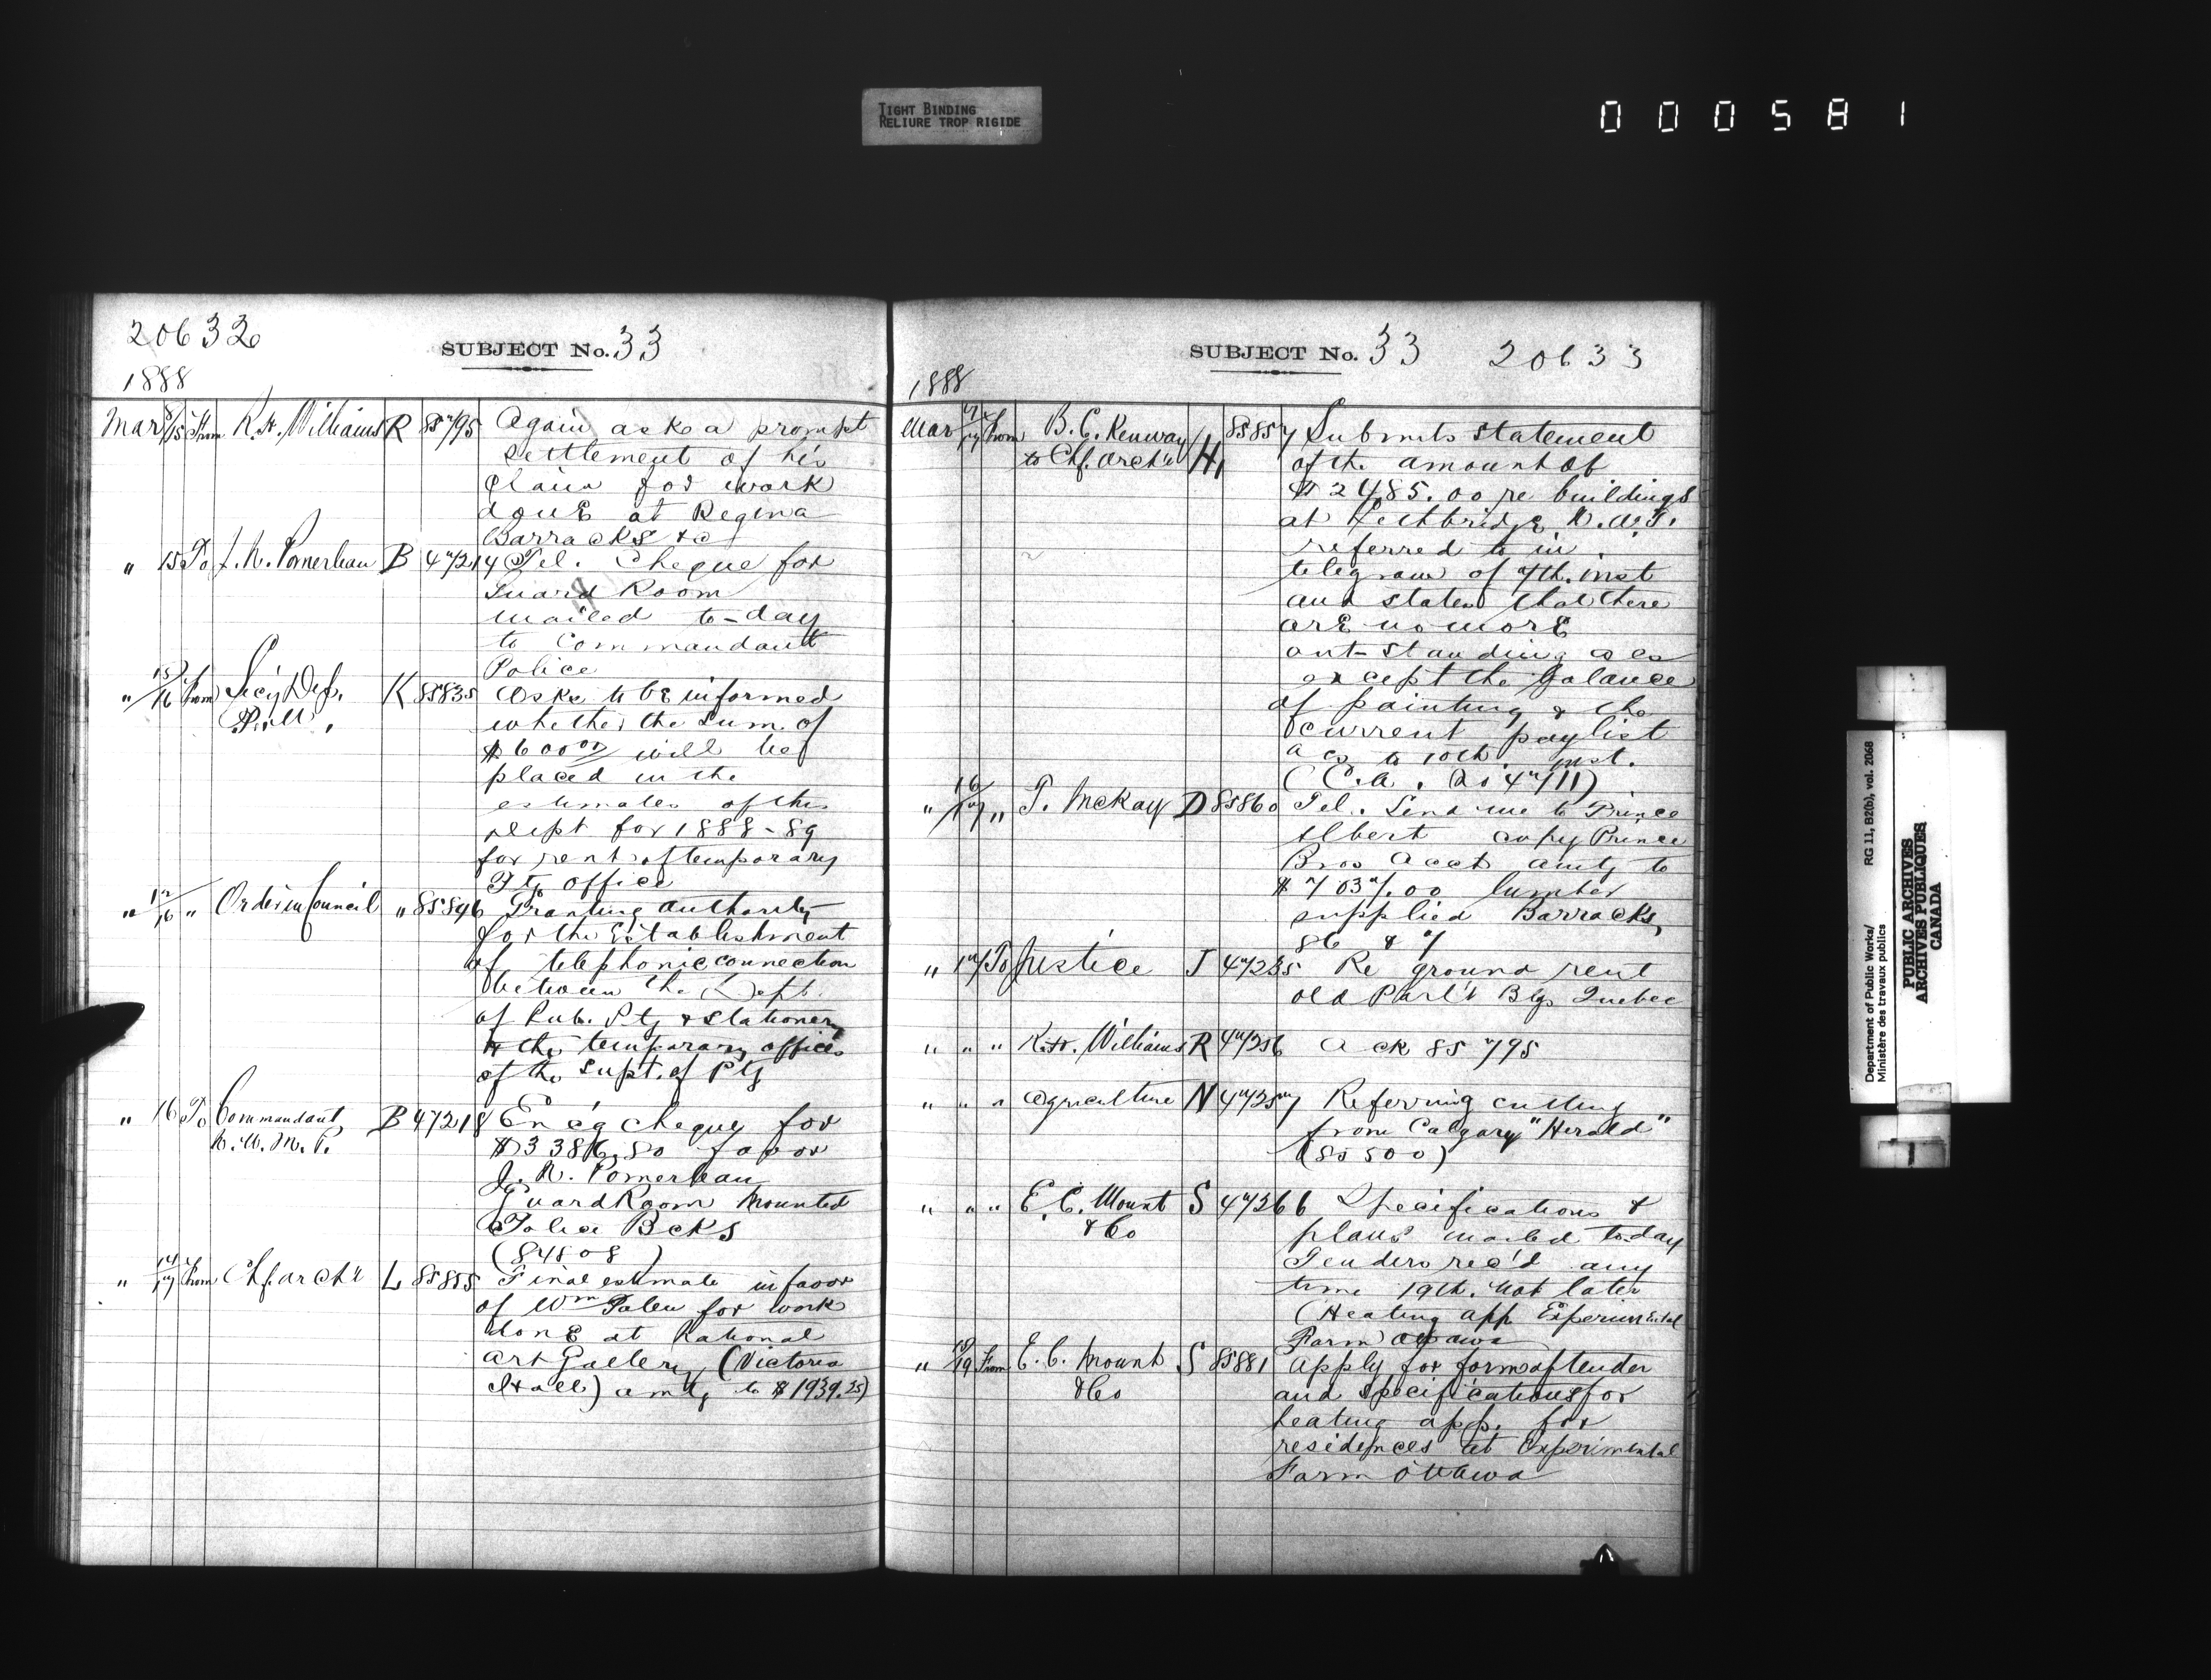 TIGHT BINDING
RELIURE TROP RIGIDE
000581
20632
SUBJECT No. 33
1888
Mar 8/15 From R. H. Williams R 85795 Again asks a prompt
settlement of his
claim for work
done at Regina
Barracks &c
" 15 To J. N. Pomerleau B 47214 Tel. Cheque for
Guard Room
mailed to-day
to Commandant
Police
" 15/16 From Sec'y Dep. K 85835 Asks to be informed
whether the sum of
$600 00/ will be
placed in the
estimates of this
dept for 1888-89
for rent of temporary
Ptg Office
" 12/16 " Order in Council " 85846 Granting authority
for the Establishment
of telephonic connection
between the Dept.
of Pub. Ptg & Stationery
& the temporary offices
of the Supt. of Ptg
" 16 To Commandant, B 47218 Enc'g cheque for
N. W. M. P. $3386.80 favor
J. N. Pomerleau
Guard Room Mounted
Police Bcks
(84808)
" 14/17 From Chf. Archt L 85855 Final estimate in favor
of Wm for work
done at National
Art Gallery (Victoria
Hall) amtg to $1939.25)
SUBJECT No. 33 20633
1888
Mar 7/17 From B. C. Kenway H 85857 Submits statement
to Chf. Archt of the amount of
$2485.00 re buildings
at Lethbridge N.W.T.
referred to in
telegram of 7th. inst
and states that there
are no more
out-standing acs
except the balance
of painting & the
current paylist
acs to 10th. inst.
(C.A. 47111)
" 16/17 " T. McKay D 85860 Tel. Send me to Prince
Albert copy Prince
Bros Acct amtg to
$7037.00 lumber
supplied Barracks,
86 & 7
" 17 To Justice J 47235 Re ground rent
old Parl't Blgs Quebec
" " " R. H. Williams R 47256 Ack 85795
" " " Agriculture N 47257 Referring cutting
from Calgary "Herald"
(85500)
" " " E. C. Mount S 47266 Specifications &
& Co plans mailed to-day
Tenders rec'd any
time 19th. not later
(Heating app Experimental
Farm Ottawa
" 18/19 From E. C. Mount S 85881 Apply for form of tender
& Co and specifications for
heating app. for
residences at Experimental
Farm Ottawa
Department of Public Works/ RG 11, B2(b), vol. 2068
Ministère des travaux publics
PUBLIC ARCHIVES
ARCHIVES PUBLIQUES
CANADA